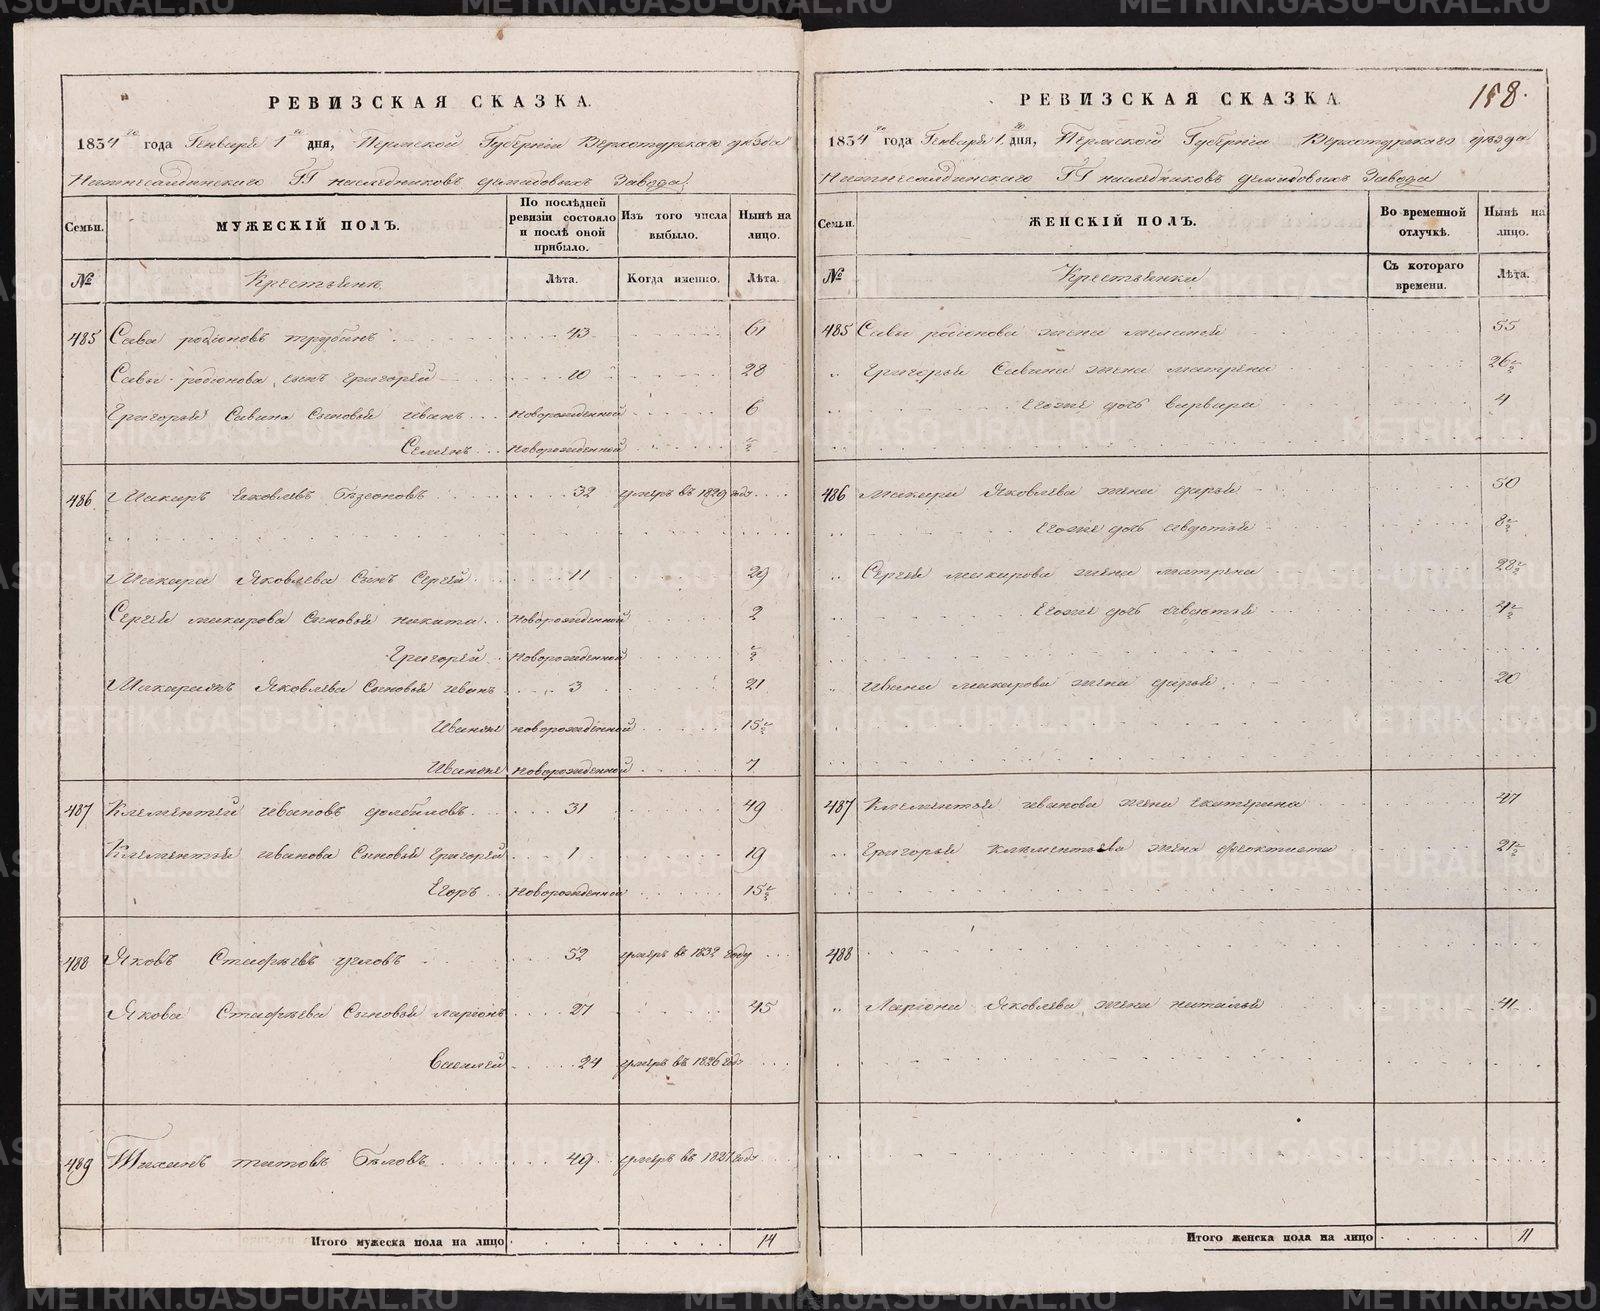 РЕВИЗСКАЯ СКАЗКА.
1834 го года Генваря 1 го дня, Пермской Губернiи Верхотурскаго уѣзда
Нижнесалдинскаго ГГ наслѣдниковъ Демидовыхъ Завода
Семьи. МУЖЕСКІЙ ПОЛЪ. По послѣдней ревизіи состояло и послѣ оной прибыло. Изъ того числа выбыло. Нынѣ на лицо.
№ Крестьянъ Лѣта. Когда именно. Лѣта.
485 Сава родіоновъ трубинъ 43 61
Савы родіонова сынъ григорей 10 28
Григорья Савина Сыновья иванъ Новорожденной 6
Семенъ Новорожденной ½
486 Макаръ яковлевъ 32 умеръ въ 1829 году
Макара Яковлева Сынъ Сергей 11 29
Сергея макарова Сыновья никита Новорожденной 2
Григорей Новорожденной ½
Яковлева Сыновья иванъ 3 21
Иванъже новорожденной 15½
Иванъже Новорожденной 7
487 Клементей ивановъ долбиловъ 31 49
Клементья иванова Сыновья григорей 1 19
Егоръ Новорожденной 15½
488 Яковъ Стафѣевъ угловъ 52 умеръ въ 1832 году
Якова Стафѣева Сыновья ларіонъ 27 45
Василей 24 умеръ въ 1826 году
489 титовъ бѣловъ 49 умеръ въ 1821 году
Итого мужеска пола на лицо 14
158.
РЕВИЗСКАЯ СКАЗКА.
1834 го года Генваря 1 го дня, Пермской Губернiи Верхотурскаго уѣзда
Нижнесалдинскаго ГГ наслѣдниковъ демидовыхъ Завода
Семьи. ЖЕНСКІЙ ПОЛЪ. Во временной отлучкѣ. Нынѣ на лицо.
№ Крестьянки Съ котораго времени. Лѣта.
485 Савы родіонова жена 55
" Григорья Савина жена матрена 26½
Егоже дочь варвара 4
486 Макара Яковлева жена дарья 50
" Егоже дочь авдотья 8½
" Сергея макарова жена матрена 28½
" Егоже дочь авдотья 4½
" Ивана макарова жена дарья 20
487 Клементья иванова жена екатерина 47
" Григорья Клементьева жена феоктиста 21½
488
" Ларіона Яковлева жена наталья 41
Итого женска пола на лицо 11
METRIKI.GASO-URAL.RU